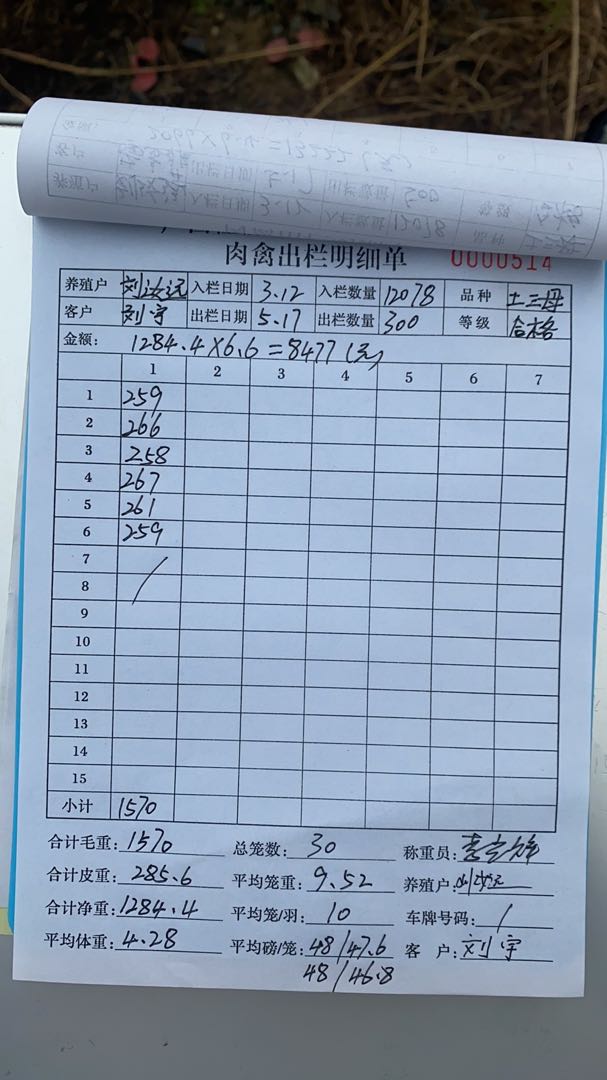 肉禽出栏明细单 0000514
养殖户 刘汝远 入栏日期 3.12 入栏数量 12078 品种 土三母
客户 刘宇 出栏日期 5.17 出栏数量 300 等级 合格
金额: 1284.4×6.6=8477(元)
1 2 3 4 5 6 7
1 259
2 266
3 258
4 267
5 261
6 259
7
8
9
10
11
12
13
14
15
小计 1570
合计毛重: 1570 总笼数: 30 称重员:
合计皮重: 285.6 平均笼重: 9.52 养殖户: 刘汝远
合计净重: 1284.4 平均笼/羽: 10 车牌号码: /
平均体重: 4.28 平均磅/笼: 48/47.6 客 户: 刘宇
48/46.8